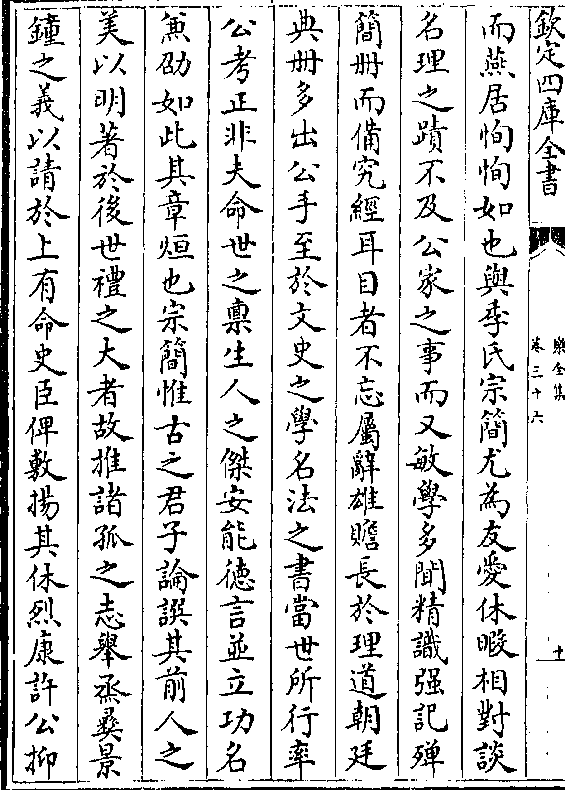 欽定四庫全書
樂全集
卷三十六
十
而燕居恂恂如也與季氏宗簡尤為友愛休暇相對談
名理之蹟不及公家之事而又敏學多聞精識强記殫
簡册而備究經耳目者不忘屬辭雄贍長於理道朝廷
典册多出公手至於文史之學名法之書當世所行率
公考正非夫命世之禀生人之傑安能徳言並立功名
兼劭如此其章烜也宗簡惟古之君子論譔其前人之
美以明著於後世禮之大者故推諸孤之志舉烝彞景
鐘之義以請於上有命史臣俾敷揚其休烈康許公抑